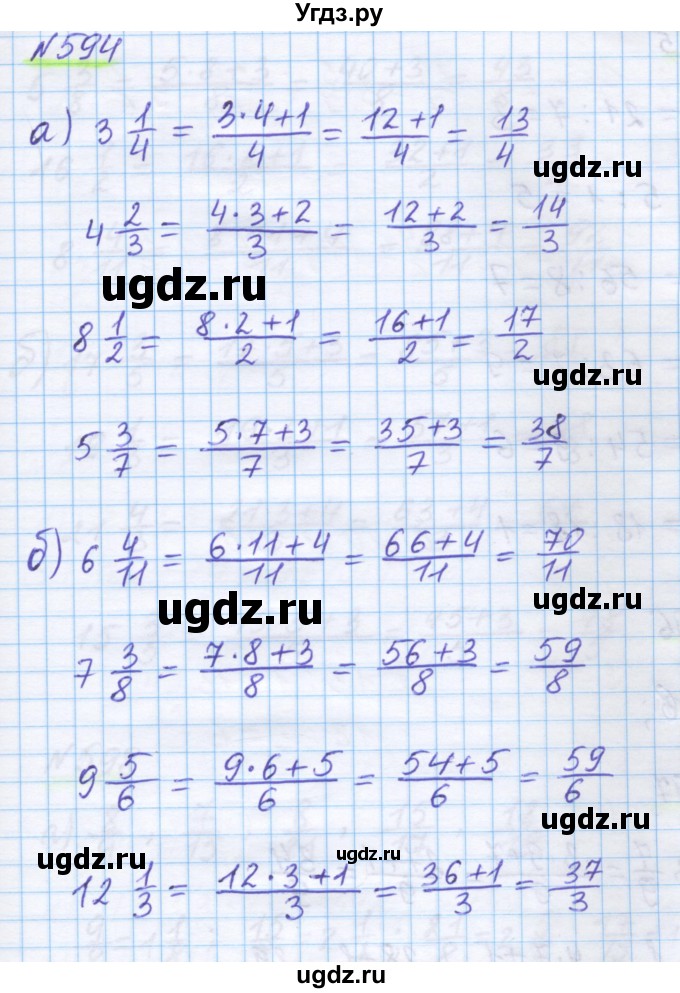 Угдз.ру
№594
а) 3 1/4 = (3·4+1)/4 = (12+1)/4 = 13/4
ugdz.ru
4 2/3 = (4·3+2)/3 = (12+2)/3 = 14/3
ugdz.ru
8 1/2 = (8·2+1)/2 = (16+1)/2 = 17/2
ugdz.ru
5 3/7 = (5·7+3)/7 = (35+3)/7 = 38/7
б) 6 4/11 = (6·11+4)/11 = (66+4)/11 = 70/11
ugdz.ru
ugdz.ru
7 3/8 = (7·8+3)/8 = (56+3)/8 = 59/8
9 5/6 = (9·6+5)/6 = (54+5)/6 = 59/6
ugdz.ru
ugdz.ru
ugdz.ru
12 1/3 = (12·3+1)/3 = (36+1)/3 = 37/3
ugdz.ru
ugdz.ru